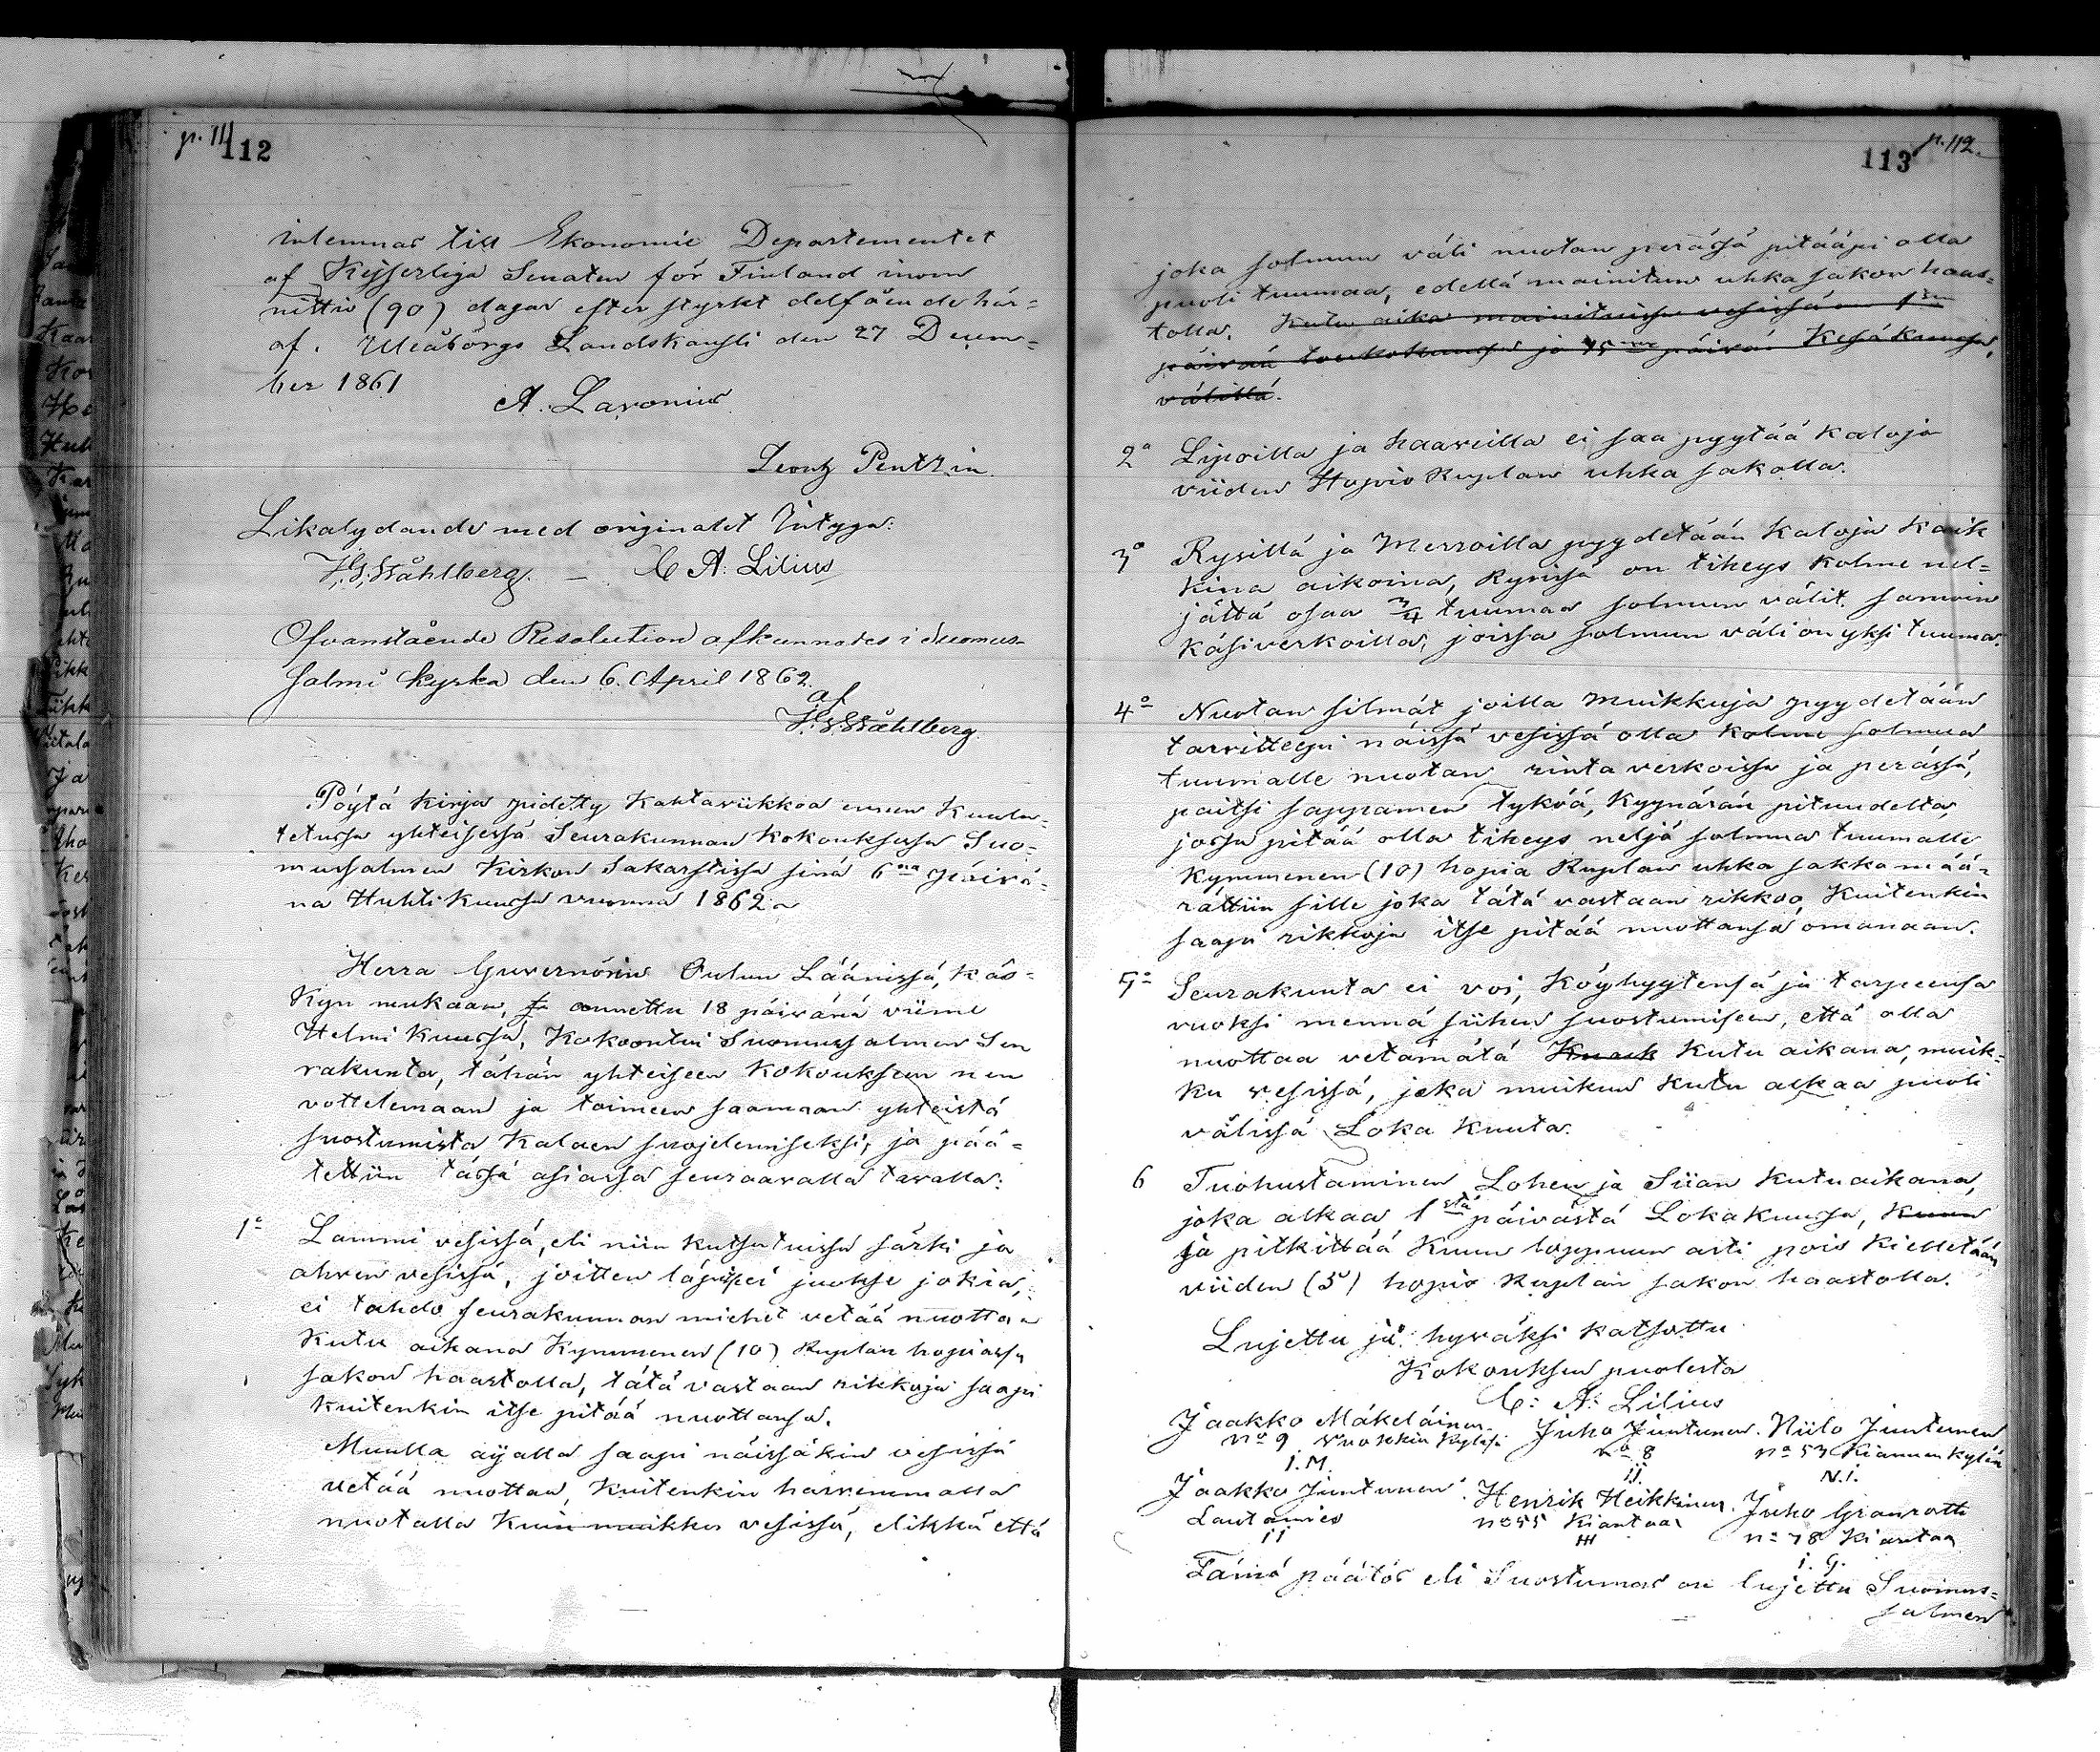 p. 111
112
intemnas till Ekonomie Departementet
af Kejserliga Senaten för Finland inom
nittio (90) dagar efter styrkt delfående här=
af. Uleåborgs Landskansli den 27 Decem=
ber 1861
A. Lavonius
Leontz Pentzin
Likalydande med originalet Intyga:
H.G. Ståhlberg. — C A. Lilius
Ofvanstående Resolution afkunnades i Suomus-
salmi kyrka den 6. April 1862.
af
H.G. Ståhlberg.
Pöytä kirja pidetty Kahtaviikkoa ennen Kuulu=
tetussa yhteisessä Seurakunnan Kokouksessa Suo=
mussalmen Kirkon Sakarstissa sinä 6na päivä=
na Huhti Kuussa vuonna 1862.
Herra Guvernörin Oulun Läänissä, Käs=
Kyn mukaan, annettu 18 päivänä viime
Helmi Kuussa, Kokoontui Suomussalmen Seu
rakunta, tähän yhteiseen Kokouksen neu
vottelemaan ja toimeen saamaan yhteistä
suostumista Kalaen suojelemiseksi, ja pää=
tettiin tässä asiassa seuraavalla tavalla:
1o Lammi vesissä, eli niin kutsutuissa särki ja
ahven vesissä, joitten läpi ei juokse jokia,
ei tahdo seurakunnan miehet vetää nuottaa
Kutu aikana Kymmenen (10) Ruplan hopiassa
sakon haastolla, tätä vastaan rikkoja saapi
Kuitenkin itse pitää nuottansa.
Muulla ajalla saapi näissäkin vesissä
vetää nuottaa, Kuitenkin harvemmalla
nuotalla Kuin muikku vesissä, elikkä että
113
p. 112.
joka solmun väli nuotan perässä pitääpi olla
puoli tuumaa, edellä mainitun uhka sakon haas=
tolla. Kutu aika mainituissa vesissä on 1sen
päivän toukokuussa ja 15 päivän Kesäkuussa,
välillä.
2o Lipoilla ja haaveilla ei saa pyytää Kaloja
viiden Hopio Ruplan uhka sakolla.
3o Rysillä ja Merroilla pyydetään Kaloja Kaik
kina aikoina, Rysissä on tiheys Kolme nel=
jättä osaa 3/4 tuumaa solmun välit. samoin
käsiverkoilla, joissa solmun väli on yksi tuuma.
4o Nuotan silmät joilla Muikkuja pyydetään
tarvitteepi näissä vesissä olla Kolme solmua
tuumalle nuotan rinta verkoissa ja perässä,
paitsi sappamen tyköä, Kyynärän pituudelta,
jossa pitää olla tiheys neljä solmua tuumalle
Kymmenen (10) hopia Ruplan uhka sakka mää=
rättiin sille joka tätä vastaan rikkoo, Kuitenkin
saapi rikkoja itse pitää nuottansa omanaan.
5o Seurakunta ei voi, Köyhyytensä ja tarpeensa
vuoksi mennä siihen suostumiseen, että olla
nuottaa vetämätä Kutu aikana, muik=
ku vesissä, joka muikun Kutu alkaa puoli
välissä Loka Kuuta.
6 Tuohustaminen Lohen ja Siian Kutuaikana,
joka alkaa 1stä päivästä Lokakuussa, Kuun
ja pitkittää Kuun loppuun asti pois Kielletään
viiden (5) hopia Ruplan sakon haastolla.
Lujettu ja hyväksi katsottu
Kokouksen puolesta
C. A. Lilius
Jaakko Mäkeläinen. Juho Juntunen. Niilo Juntunen
No 9 Vuokkin Kylässä No 8 No 53 Kiannan kylän
J. M. J J. N. J.
Jaakko Juntunen. Henrik Heikkinen. Juho Granrotti
Lautamies No 55 Kiantaa No 78 Kiantaa
J J HH J. G.
Tämä päätös eli Suostumus on lujettu Suomus=
salmen